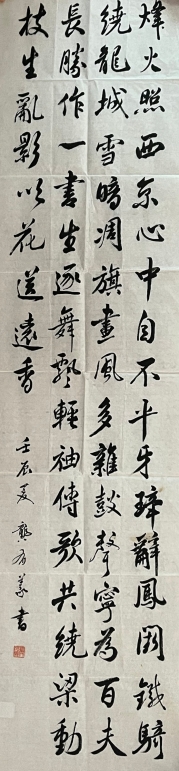 烽火照西京心中自不平牙璋辭鳳闕鐵騎
繞龍城雪暗凋旗畫風多雜鼓聲寧為百夫
長勝作一書生逐舞飄輕袖傳歌共繞梁動
枝生亂影吹花送遠香
壬辰夏 龔有義書